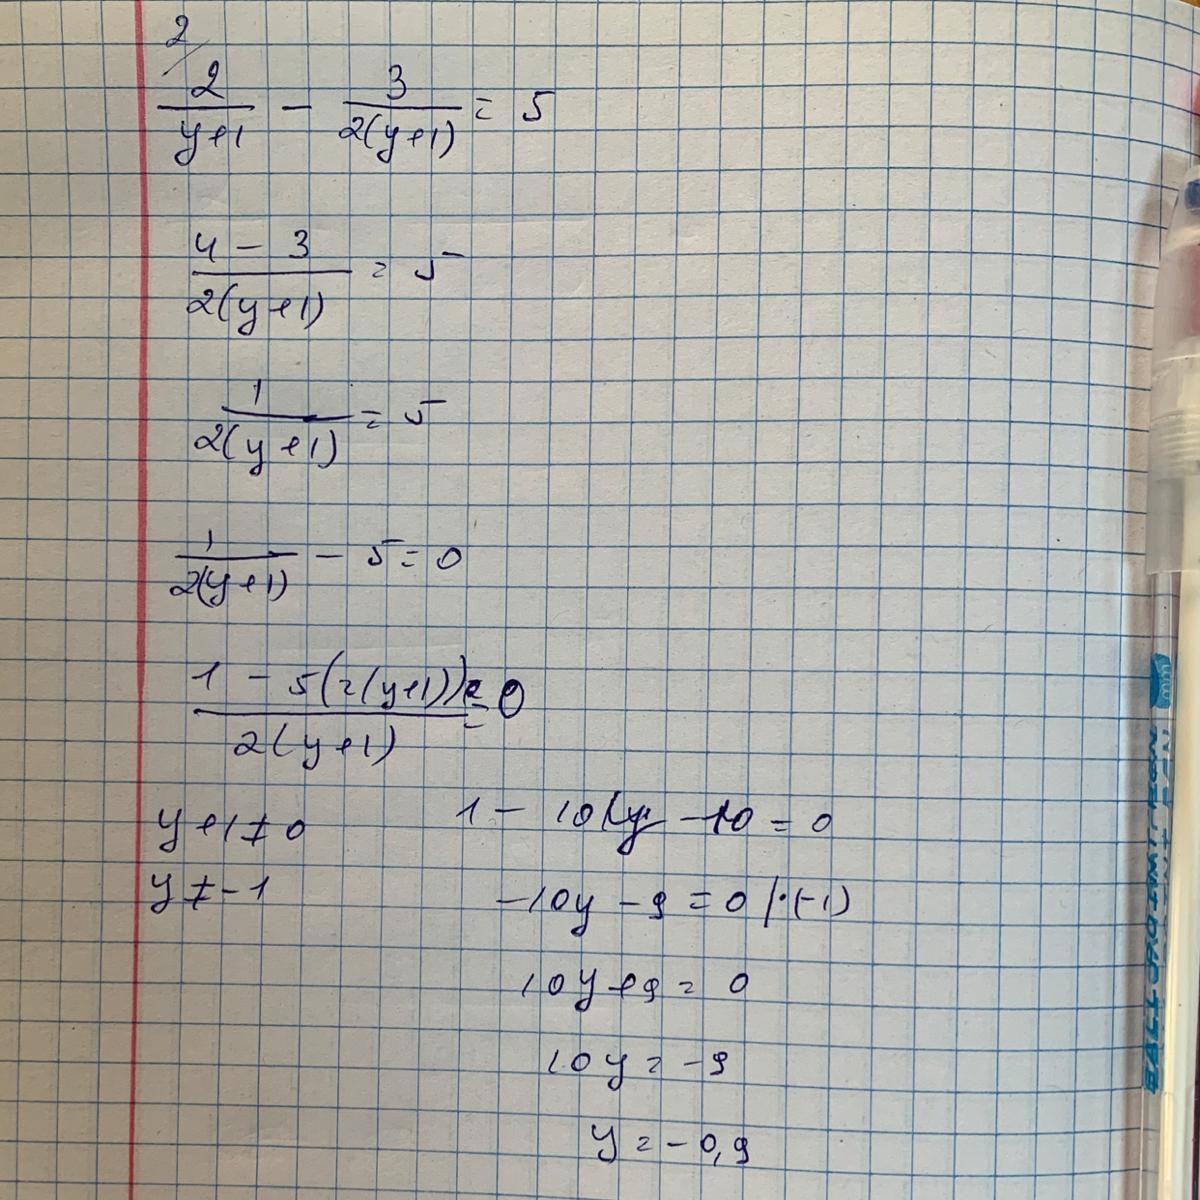 2/
2/(y+1) - 3/(2(y+1)) = 5
(4 - 3)/(2(y+1)) = 5
1/(2(y+1)) = 5
1/(2(y+1)) - 5 = 0
(1 - 5(2(y+1)))/(2(y+1)) = 0
y+1≠0
y≠-1
1 - 10y - 10 = 0
-10y - 9 = 0 |·(-1)
10y+9 = 0
10y = -9
y = -0,9